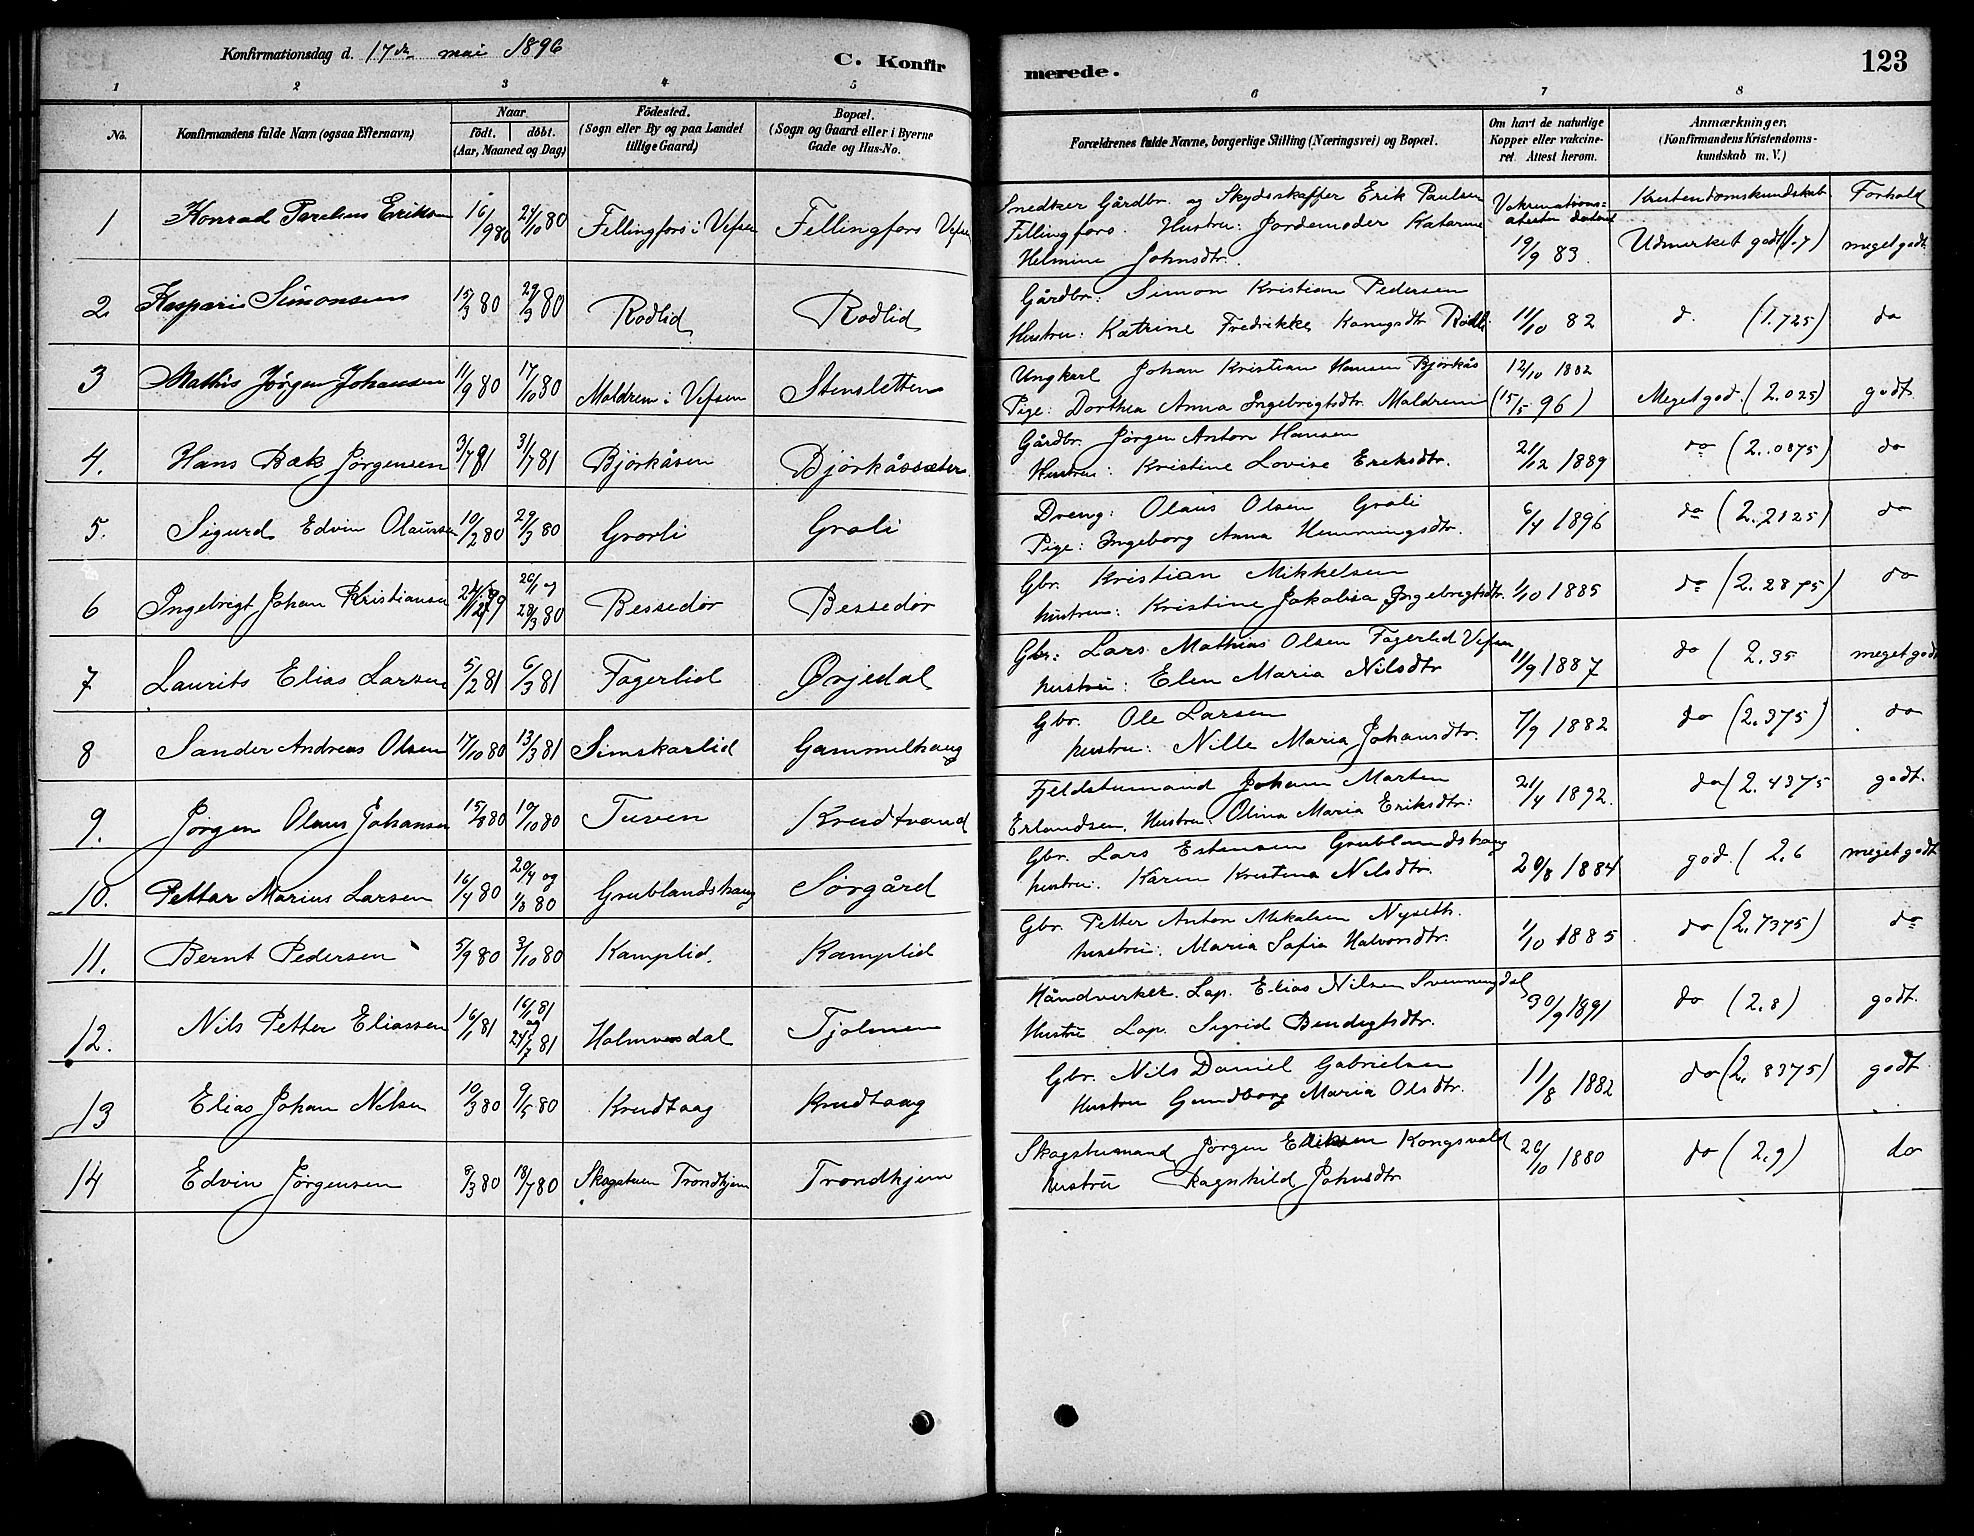 Konfirmationsdag d. 17de mai 1896
C. Konfirmerede.
123
1 2 3 4 5 6 7 8
No.
Konfirmandens fulde Navn (ogsaa Efternavn)
Naar
født. døbt.
(Aar, Maaned og Dag)
Födested.
(Sogn eller By og paa Landet
tillige Gaard)
Bopæl.
(Sogn og Gaard eller i Byerne
Gade og Hus-No.
Forældrenes fulde Navne, borgerlige Stilling (Næringsvei) og Bopæl.
Om havt de naturlige
Kopper eller vakcine-
ret. Attest herom.
Anmærkninger,
(Konfirmandens Kristendoms-
kundskab m. V.)
Kristendomskundskab Forhold
1 Konrad Eriksen 16/9 80 24/10 80 Fellingfors i Vefsen Fellingfors Vefsen
Snedker Gårdbr. og Skydsskaffer Erik Paulsen
Fellingfors. Hustru: Jordemoder Katarina
Helmine Johnsdtr.
Vakcinations-
attester dateret
19/9 83. Udmerket godt (1.7) meget godt.
2. Kasparis Simonsen 15/3 80 29/3 80 Rodlid Rodlid
Gårdbr: Simon Kristian Pedersen
Hustru: Katrine Fredrikke Rødli 11/10 82 d. (1.725) do
3 Mathis Jörgen Johansen 11/9 80 17/10 80 Maldrem i Vefsen Stensletten
Ungkarl Johan Kristian Hansen Bjørkås 12/10 1882
Pige: Dorthea Anna Ingebrigtsdtr. Maldrem (15/5 96) Meget god. (2.025) godt.
4. Hans Bæk Jörgensen 3/7 81 31/7 81 Björkåsen Björkåssæter
Gårdbr. Jørgen Anton Hansen
Hustru: Kristine Lovise Eriksdtr. 21/12 1889 do (2.0875) do
5. Sigurd Edvin Olaussen 10/2 80 29/3 80 Grorli Groli
Dreng: Olaus Olsen Groli
Pige: Ingeborg Anna Hemmingsdtr. 6/4 1896 do (2.2125) do
6 Ingebrigt Johan Kristiansen 24/12 79 20/1 og 28/3 80 Bessedör Bessedör
Gbr. Kristian Mikkelsen
hustru: Kristine Jakobsa Ingebrigtsdtr. 1/10 1885 do (2.2875) do
7 Laurits Elias Larsen 5/2 81 6/3 81 Fagerlid Örjedal
Gbr: Lars Mathias Olsen Fagerlid Vefsen
hustru: Elen Maria Nilsdtr 11/9 1887 do (2.35 meget godt
8 Sander Andreas Olsen 17/10 80 13/3 81 Simskarlid Gammelhaug
Gbr. Ole Larsen
hustru: Nille Maria Johansdtr. 7/9 1882 do (2.375) do
9. Jörgen Olaus Johansen 15/8 80 10/10 80 Tuven Krudtvand
Fjeldstumand Johan Marten
Erlandsen. Hustru. Olina Maria Eriksdtr: 21/4 1892. do (2.4375 godt.
10. Petter Marius Larsen 16/4 80 20/4 og 1/8 80 Grublandshaug Sörgård
Gbr. Lars Estensen Grublandshaug
hustru. Karen Kristina Nilsdtr. 20/8 1884 god. (2.6 meget godt
11. Bernt Pedersen 5/9 80 3/10 80 Kamplid. Kamplid
Gbr. Petter Anton Mikalsen Nyseth.
hustru: Maria Safia Halvorsdtr. 1/10 1885 do (2.7375) do
12. Nils Petter Eliassen 16/1 81 16/1 81 og 24/7 81 Holmvasdal Tjolmen
Håndverker. Lap. Elias Nilsen Svenningdal
Hustru Lap. Sigrid Bendigtsdtr. 30/9 1891 do (2.8) godt.
13 Elias Johan Nilsen 10/3 80 9/5 80 Krudtaag Krudtaag
Gbr. Nils Daniel Gabrielsen
Hustru Gundborg Maria Olsdtr. 11/8 1882 do (2.8375) godt
14 Edvin Jörgensen 8/3 80 18/7 80 Skogstuen Trondhjem Trondhjem
Skogstumand Jörgen Eriksen Kongsvold
hustru Ragnhild Johnsdtr 26/10 1880 do (2.9) do